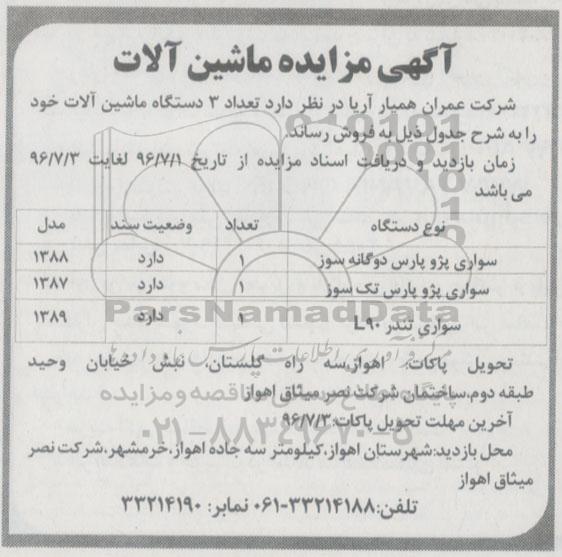 آگهی مزایده ماشین آلات
شرکت عمران همیار آریا در نظر دارد تعداد ۳ دستگاه ماشین آلات خود
را به شرح جدول ذیل به فروش رساند.
زمان بازدید و دریافت اسناد مزایده از تاریخ ۹۶/۷/۱ لغایت ۹۶/۷/۳
می باشد
نوع دستگاه تعداد وضعیت سند مدل
سواری پژو پارس دوگانه سوز ۱ دارد ۱۳۸۸
سواری پژو پارس تک سوز ۱ دارد ۱۳۸۷
سواری تندر L۹۰ ۱ دارد ۱۳۸۹
ParsNamadData
تحویل پاکات: اهواز،سه راه گلستان، نبش خیابان وحید
طبقه دوم،ساختمان شرکت نصر میثاق اهواز
آخرین مهلت تحویل پاکات:۹۶/۷/۳
۰۲۱-۸۸۳۴۹۶۷۰-۵
محل بازدید:شهرستان اهواز،کیلومتر سه جاده اهواز،خرمشهر،شرکت نصر
میثاق اهواز
تلفن:۳۳۲۱۴۱۸۸-۰۶۱ نمابر: ۳۳۲۱۴۱۹۰